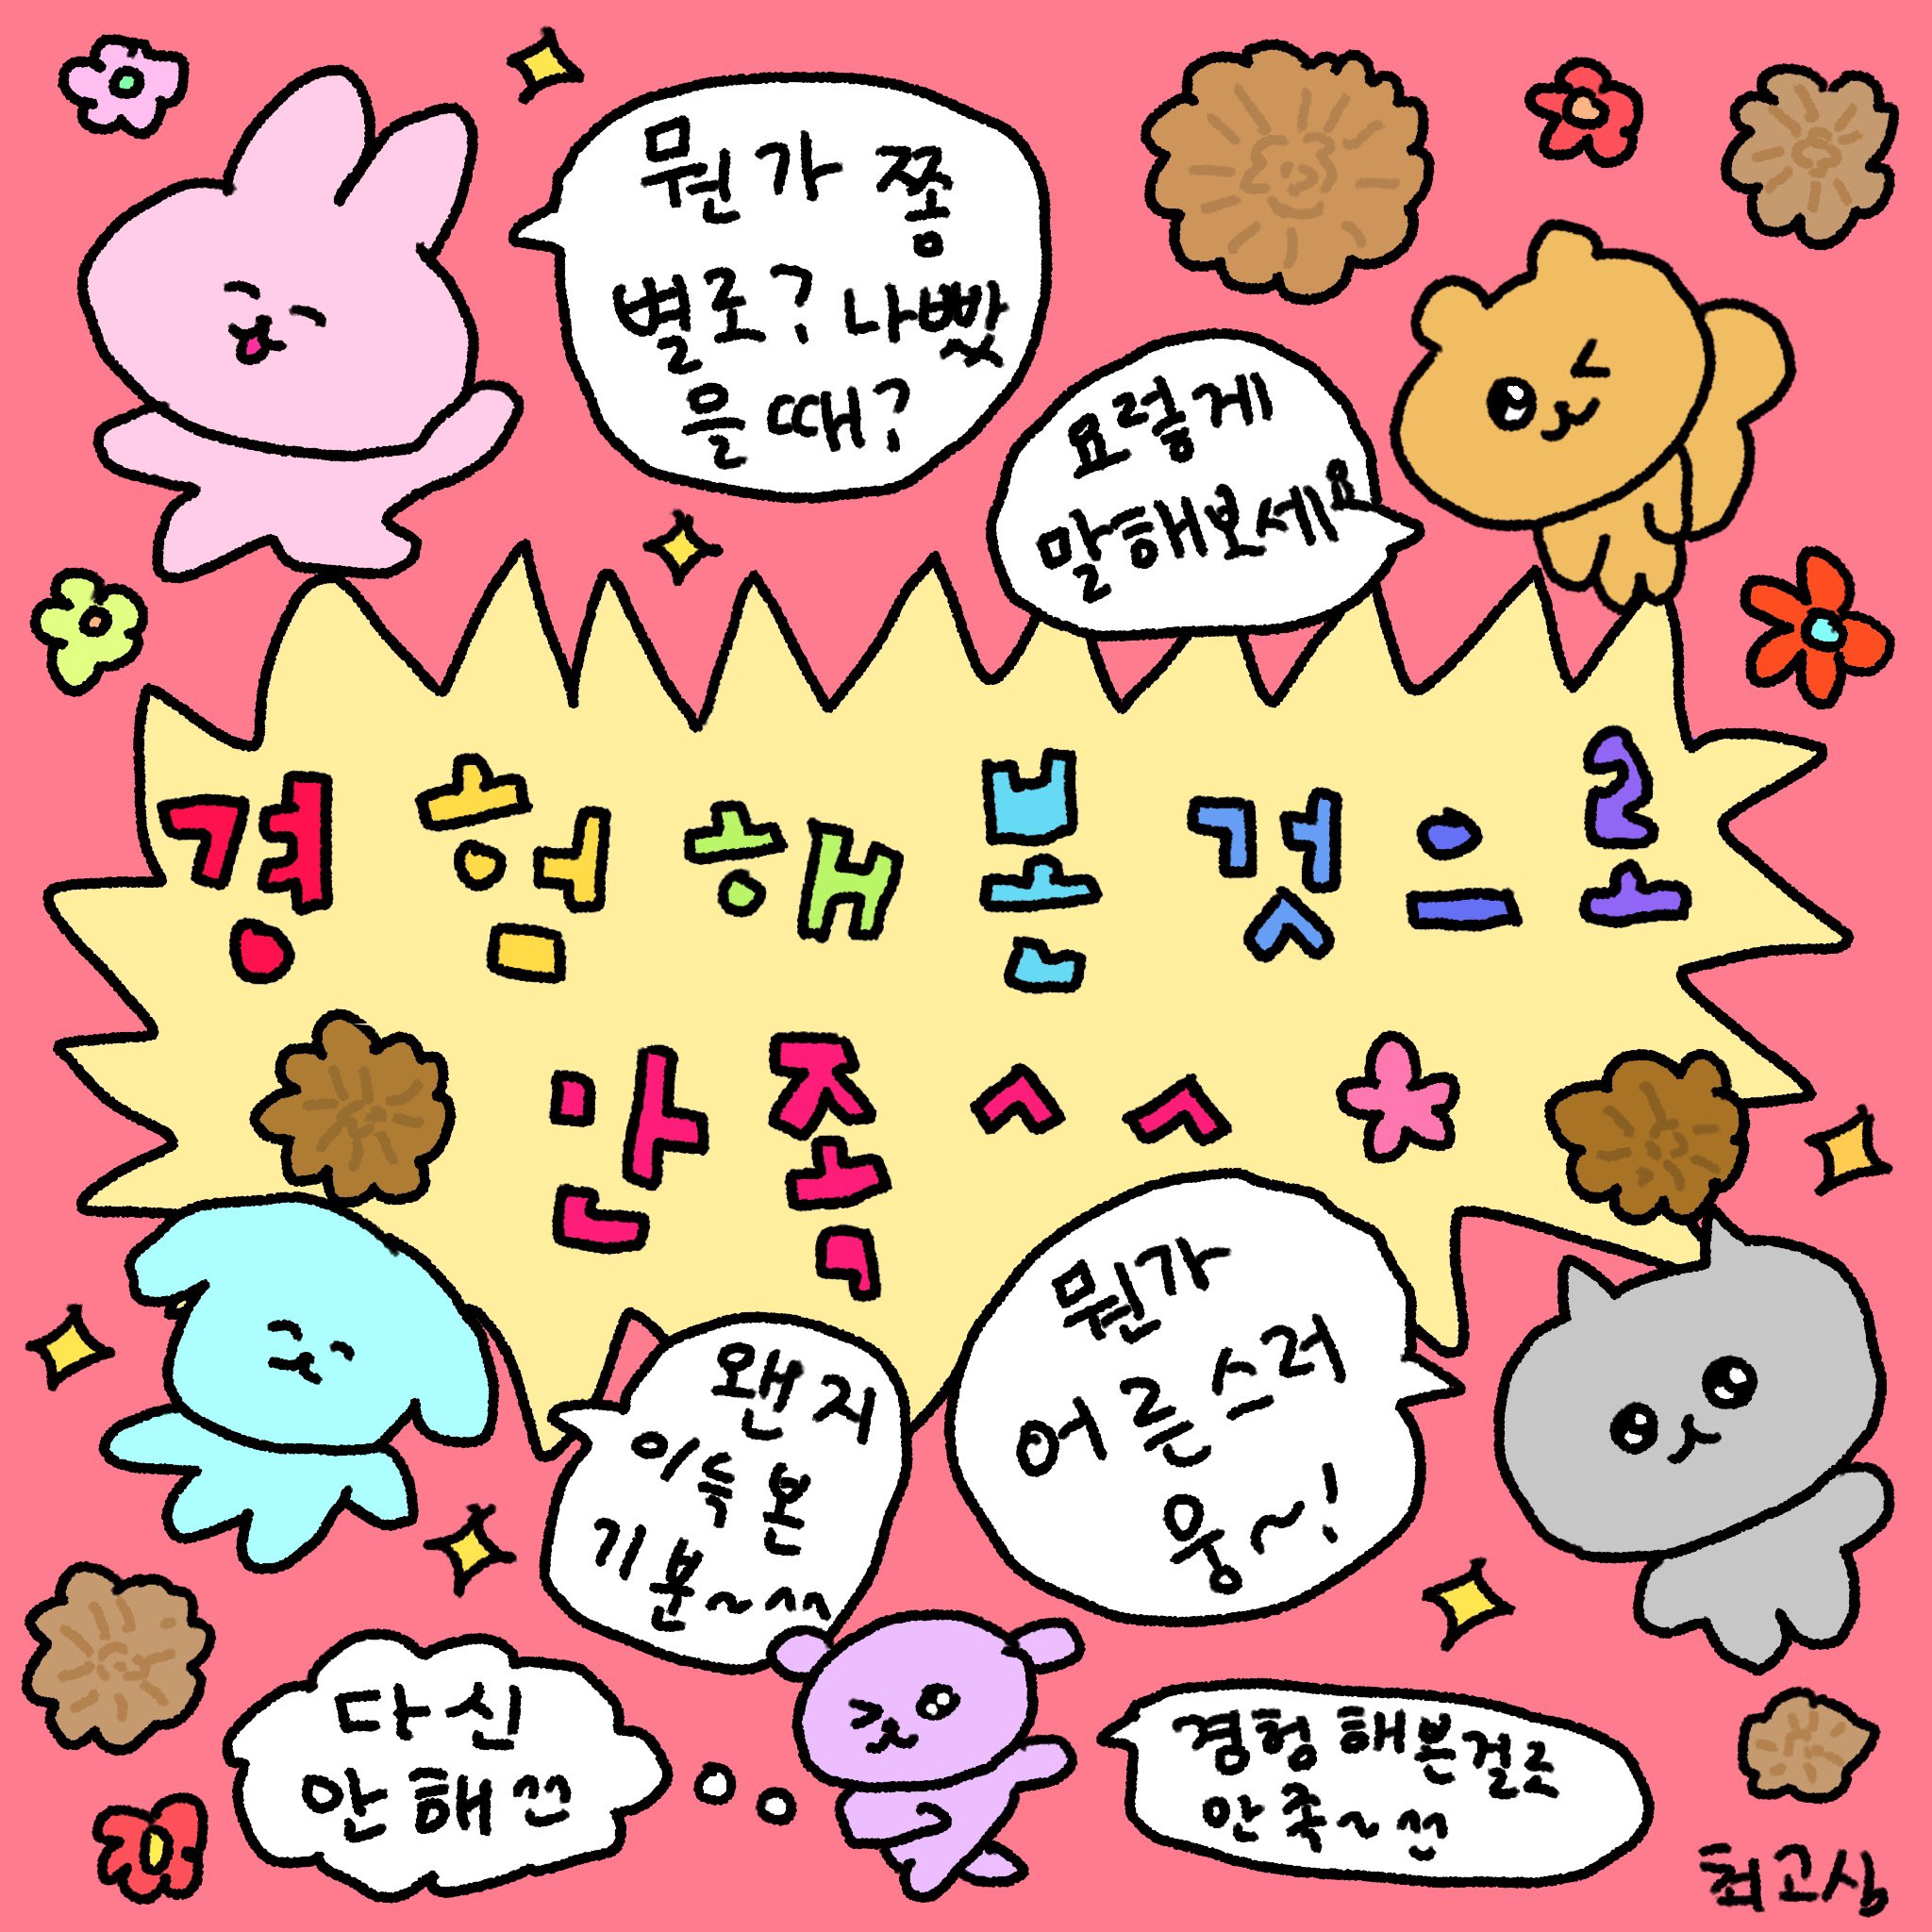 뭔가 쫌
별로? 나빴
을 때?
요렇게
말해보세요
경험해 본 것으로
만족 ^^
왠지
이득본
기분~^^
뭔가
어른스러
웅~!
다신
안해 ^^
경험해본걸로
만족~^^
최고심